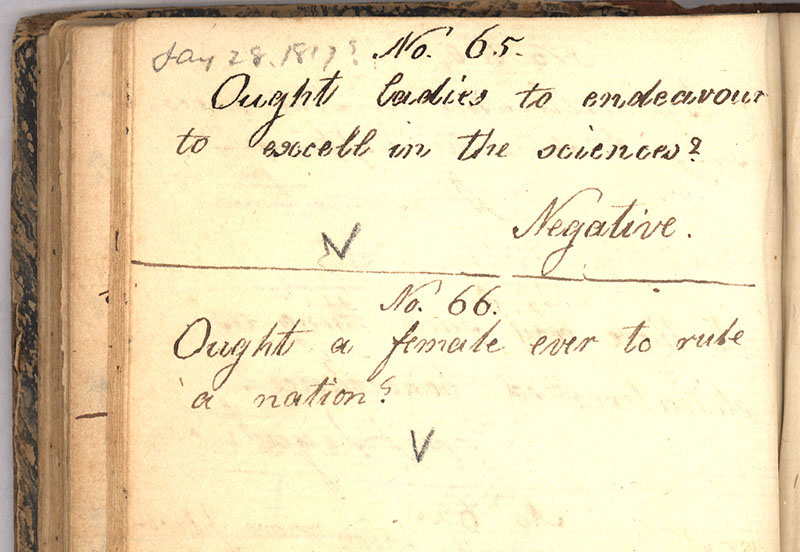 Jan 28. 1817?
No. 65.
Ought ladies to endeavour
to excell in the sciences?
Negative.
No. 66.
Ought a female ever to rule
a nation?